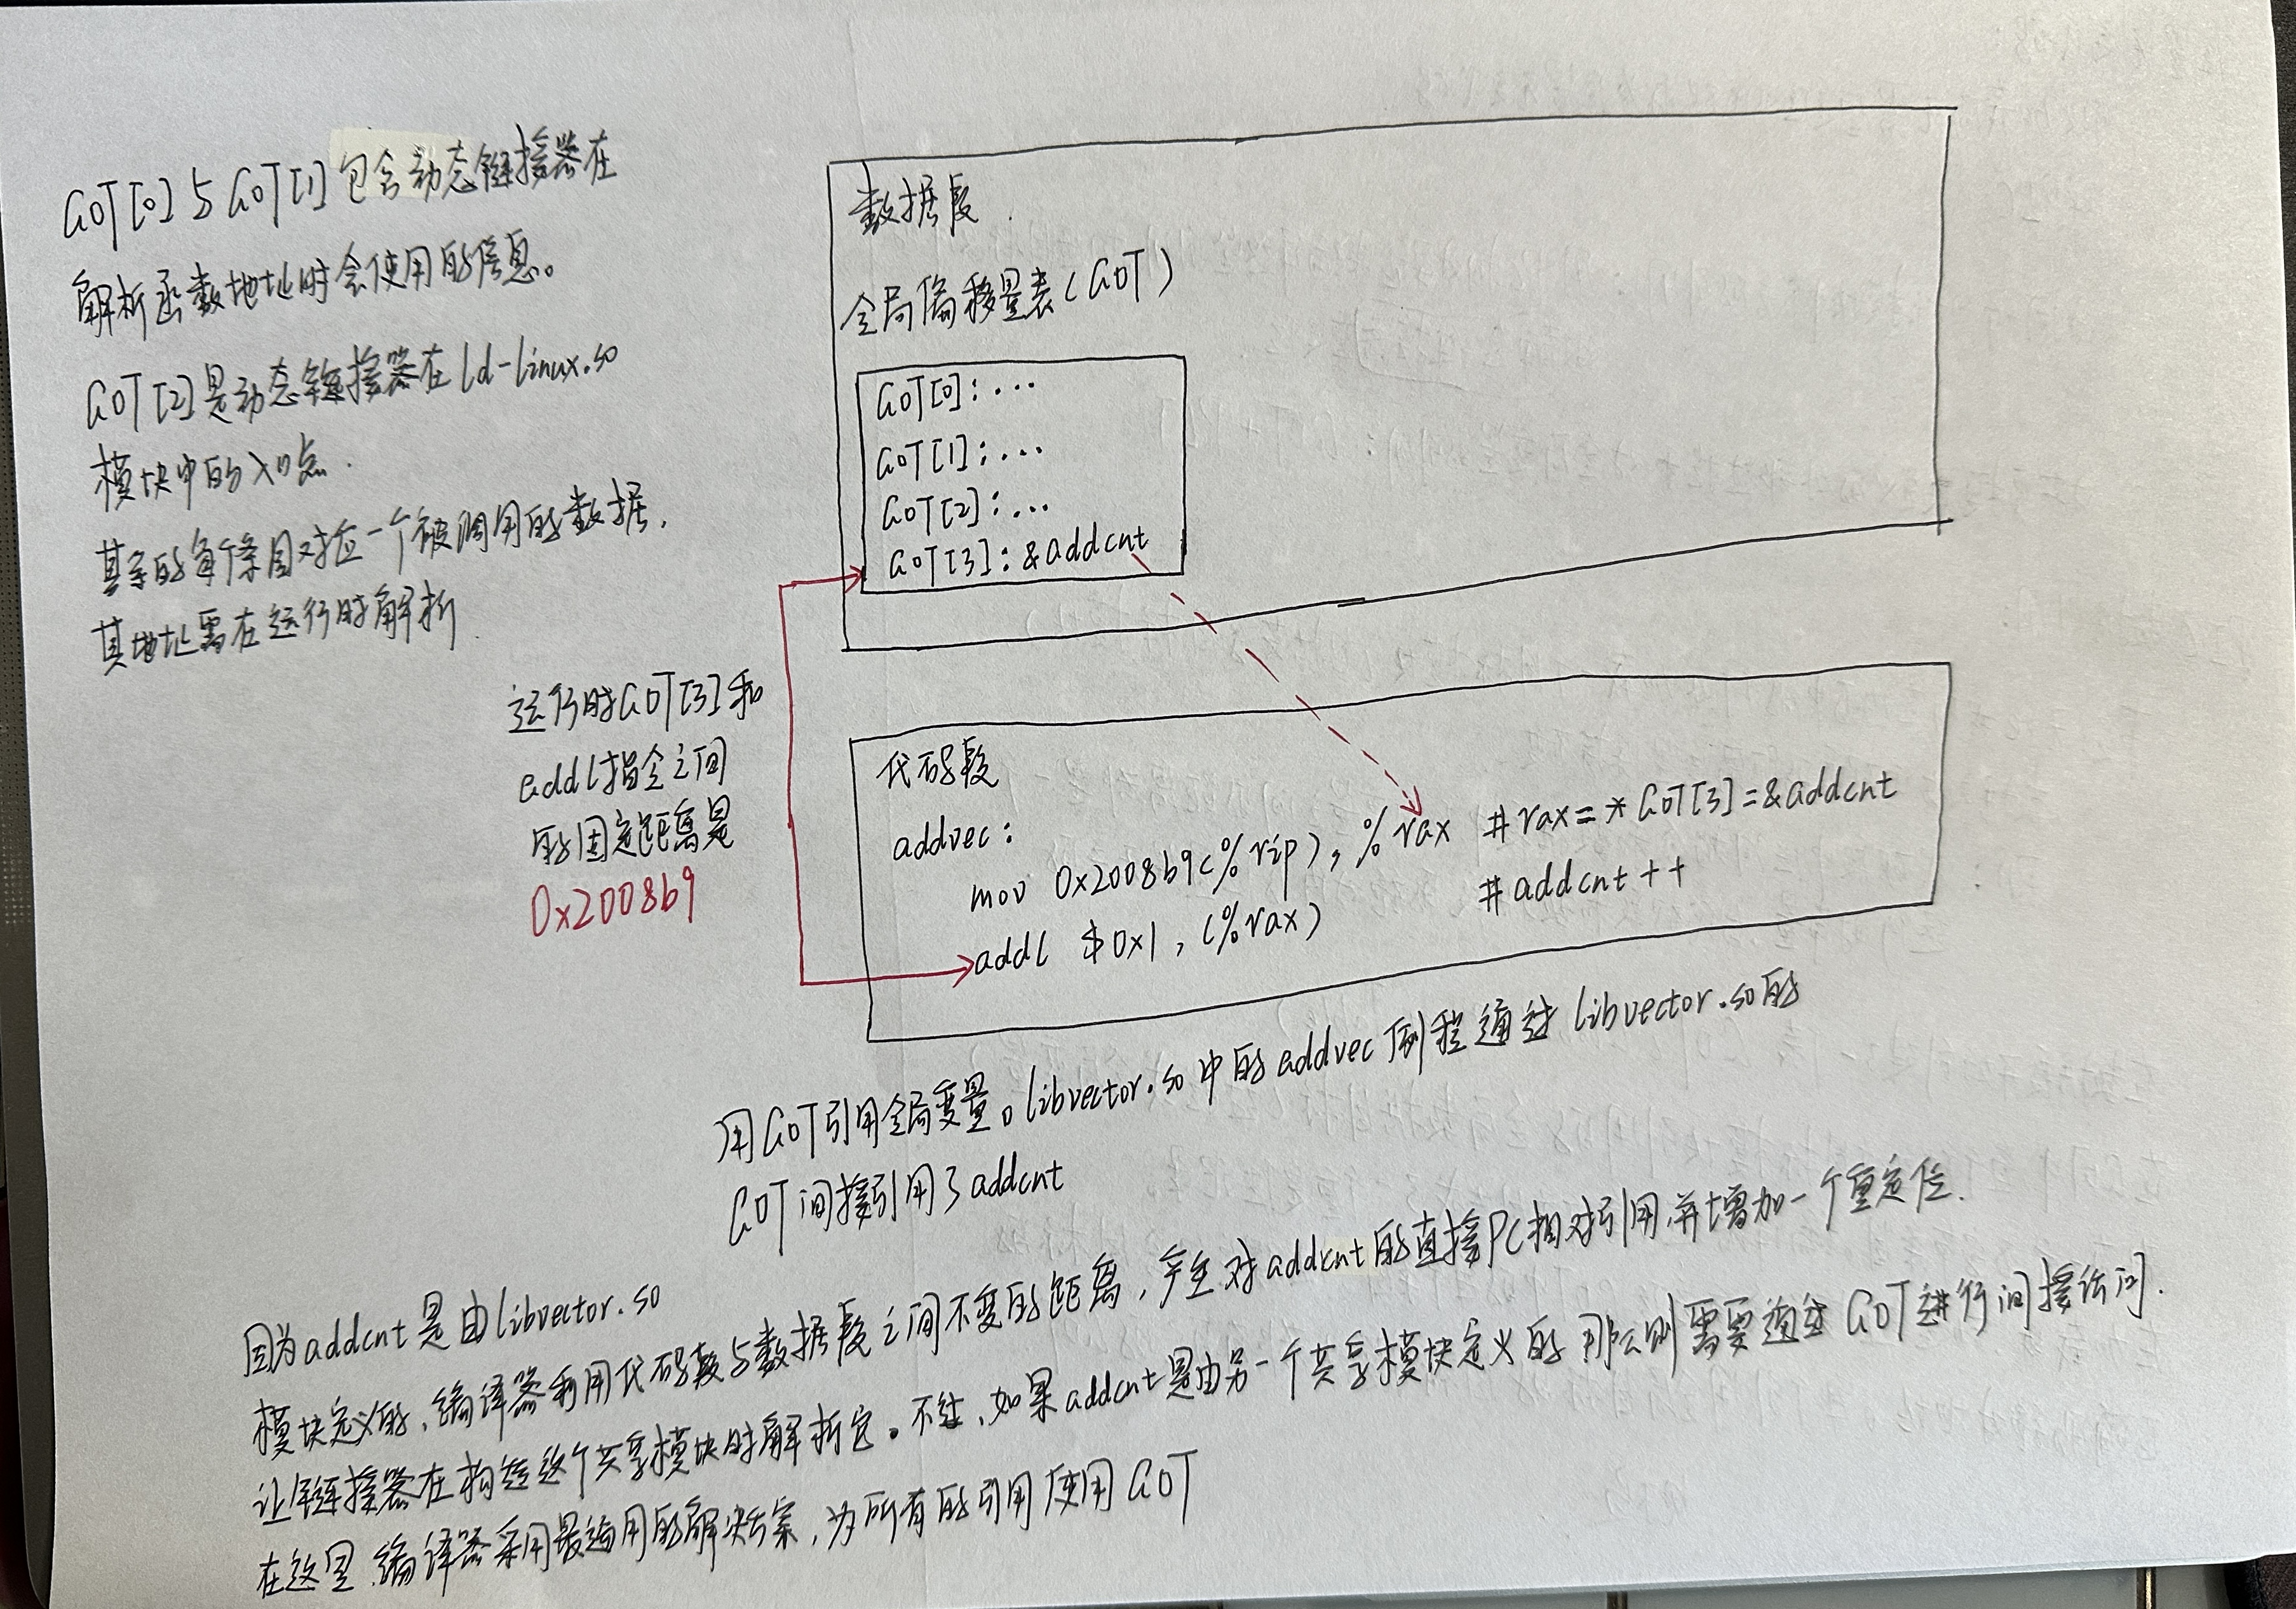 GOT[0]与GOT[1]包含动态链接器在
解析函数地址时会使用的信息。
GOT[2]是动态链接器在ld-linux.so
模块中的入口点.
其余的每个条目对应一个被调用的数据,
其地址需在运行时解析.
数据段
全局偏移量表(GOT)
GOT[0]:...
GOT[1]:...
GOT[2]:...
GOT[3]:&addcnt
运行时GOT[3]和
addl指令之间
的固定距离是
0x2008b9
代码段
addvec:
mov 0x2008b9(%rip), %rax #rax=*GOT[3]=&addcnt
addl $0x1, (%rax) #addcnt++
用GOT引用全局变量。libvector.so中的addvec例程通过libvector.so的
GOT间接引用了addcnt
因为addcnt是由libvector.so
模块定义的,编译器利用代码段与数据段之间不变的距离,产生对addcnt的直接PC相对引用,并增加一个重定位.
让链接器在构造这个共享模块时解析它。不过,如果addcnt是由另一个共享模块定义的 那么则需要通过GOT进行间接访问.
在这里,编译器采用最通用的解决方案,为所有的引用使用GOT